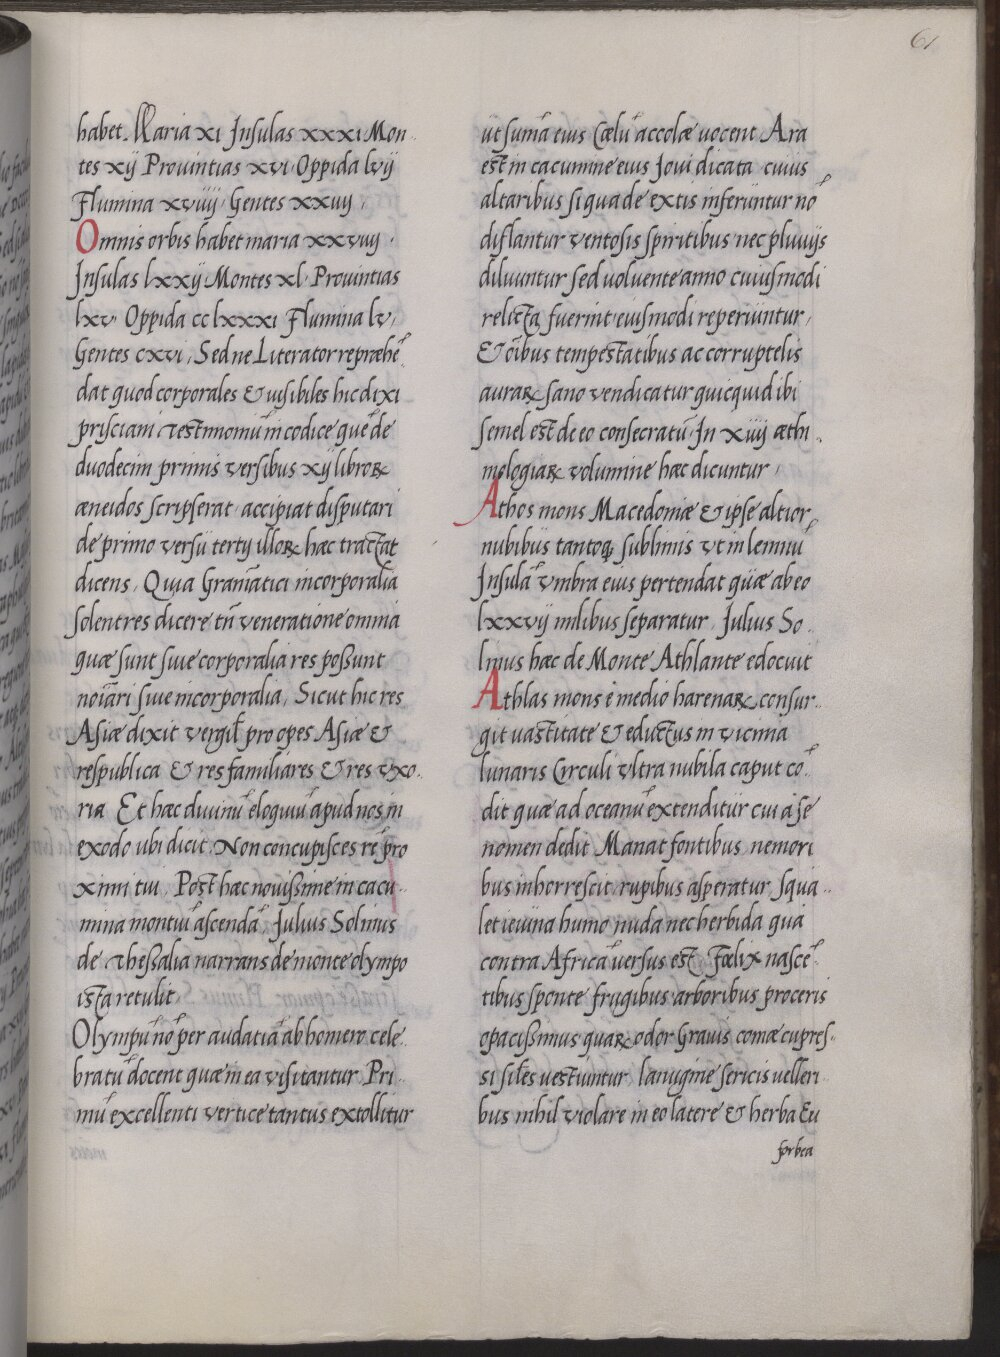 61
habet. Maria xi Insulas xxxi Mon
tes xij Prouintias xvi Oppida lvij
Flumina xviiij Gentes xxuij
Omnis orbis habet maria xxvuij
Insulas lxxij Montes xl Prouintias
lxv Oppida cc lxxxi Flumina lv,
Gentes cxvi, Sed ne Literator repræhē
dat quod corporales & uisibiles hic dixi
prisciani testimoniū in codice quē de
duodecim primis versibus xij libroꝝ
æneidos scripserat accipiat disputari
de primo versu tertij illoꝝ hæc tractat
dicens, Quia Gram̄atici incorporalia
solent res dicere tn̄ veneratione omnia
quæ sunt siue corporalia res possunt
noīari siue incorporalia, Sicut hic res
Asiæ dixit vergil̄ pro opes Asiæ &
respublica & res familiares & res vxo
ria Et hæc diuinū eloquiū apud nos in
exodo ubi dicit. Non concupisces rē pro
ximi tui, Post hæc nouissime in cacu
mina montiū ascendā Julius Solinus
de thessalia narrans de monte olympo
ista retulit
Olympū nō per audatiā ab homero cele
bratū docent quæ in ea visitantur Pri
mū excellenti vertice tantus extollitur
ut sum̄a eius Cælū accolæ uocent Ara
est in cacumine eius Joui dicata cuius
altaribus si qua de extis inferuntur nō
diflantur ventosis spiritibus nec pluuijs
diluuntur sed uoluente anno cuiusmodi
relicta fuerint eiusmodi reperiuntur,
& oībus tempestatibus ac corruptelis
auraꝝ sano vendicatur quicquid ibi
semel est deo consecratū In xiiij æthi
melogiaꝝ volumine hæc dicuntur,
Athos mons Macedoniæ & ipse altior
nubibus tantoq; sublimis vt in lemnū
Insulā vmbra eius pertendat quæ ab eo
lxxvij milibus separatur, Julius So
linus hæc de Monte Athlante edocuit
Athlas mons ē medio harenaꝝ consur
git uastitate & eductus in vicinia
lunaris Circuli vltra nubila caput cō
dit quæ ad oceanū extenditur cui a se
nomen dedit Manat fontibus nemori
bus inhorrescit rupibus asperatur squa
let ieiuna humo nuda nec herbida qua
contra Africā uersus est Fœlix nascē
tibus sponte frugibus arboribus proceris
opacissimus quaꝝ odor Grauis comæ cupres
si sil̄es uestiuntur lanugine sericis uelleri
bus nihil violare in eo latere & herba Eu
forbea